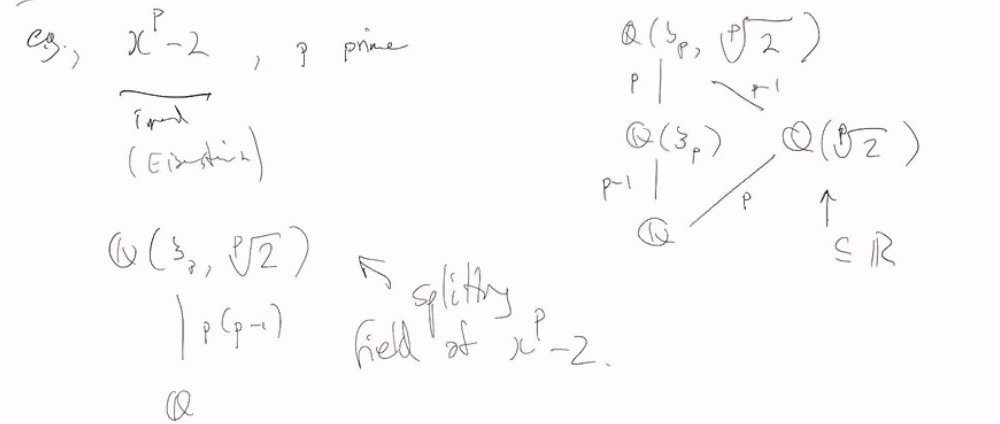 e.g., x^p - 2, p prime
irred
(Eisenstein)
ℚ(ζ_p, ᵖ√2)
| p(p-1)
ℚ
↖ splitting
field of x^p - 2.
ℚ(ζ_p, ᵖ√2)
p | \ p-1
ℚ(ζ_p) ℚ(ᵖ√2)
p-1 | / p ↑
ℚ ⊆ ℝ